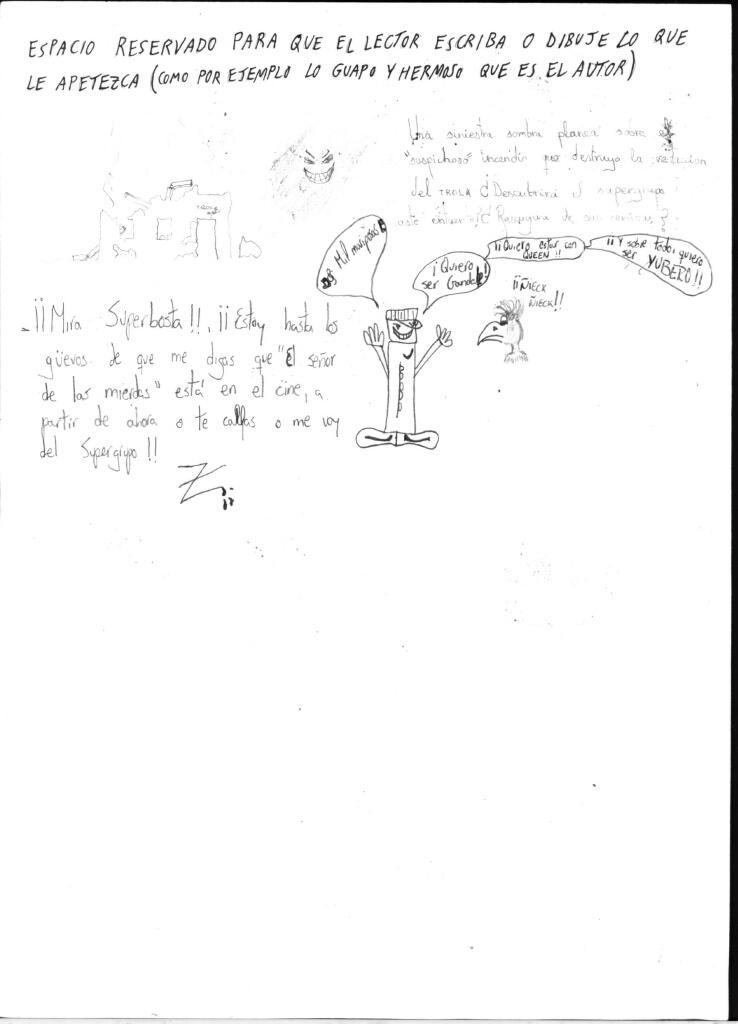 ESPACIO RESERVADO PARA QUE EL LECTOR ESCRIBA O DIBUJE LO QUE
LE APETEZCA (COMO POR EJEMPLO LO GUAPO Y HERMOSO QUE ES EL AUTOR)
Una siniestra sombra planea sobre el
"suspichoso" incendio que destruyo la redaccion
del TROLA ¿Descubrirá el supergrupo
este entuerto?¿ Resurgira de sus cenizas?
Mil mariposas
¡Quiero
ser Gandalf!
¡¡Quiero estar con
QUEEN!!
¡¡Y sobre todo, quiero
ser YUBERO!!
¡¡ÑIECK
ÑIECK!!
-¡¡Mira Superbosta!!, ¡¡Estoy hasta los
güevos de que me digas que "el señor
de las mierdas" está en el cine, a
partir de ahora o te callas o me voy
del Supergrupo!!